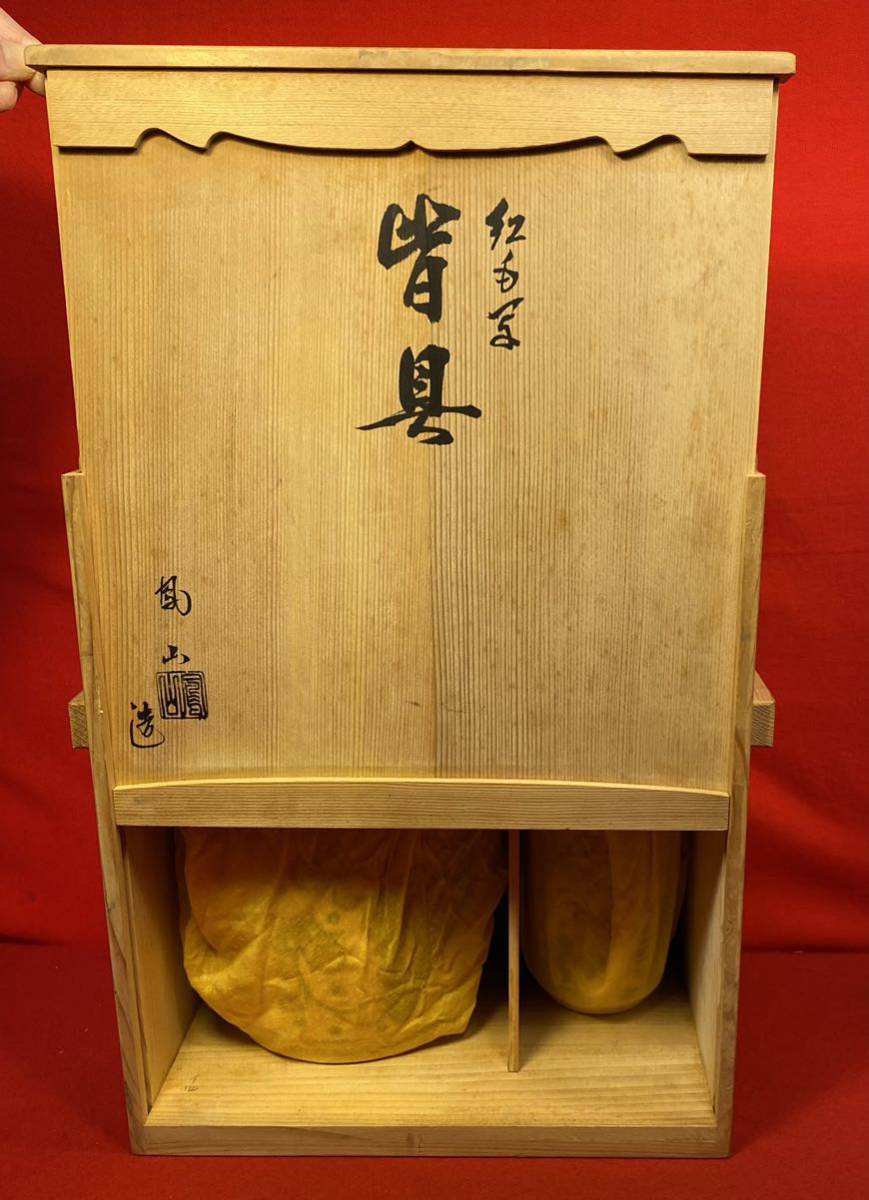 紅毛写
皆具
鳳山
造